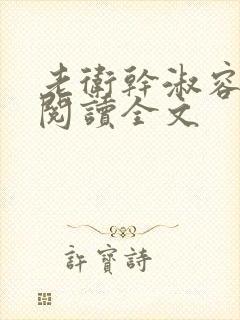 老衛幹淑容
閱讀全文
許寶詩